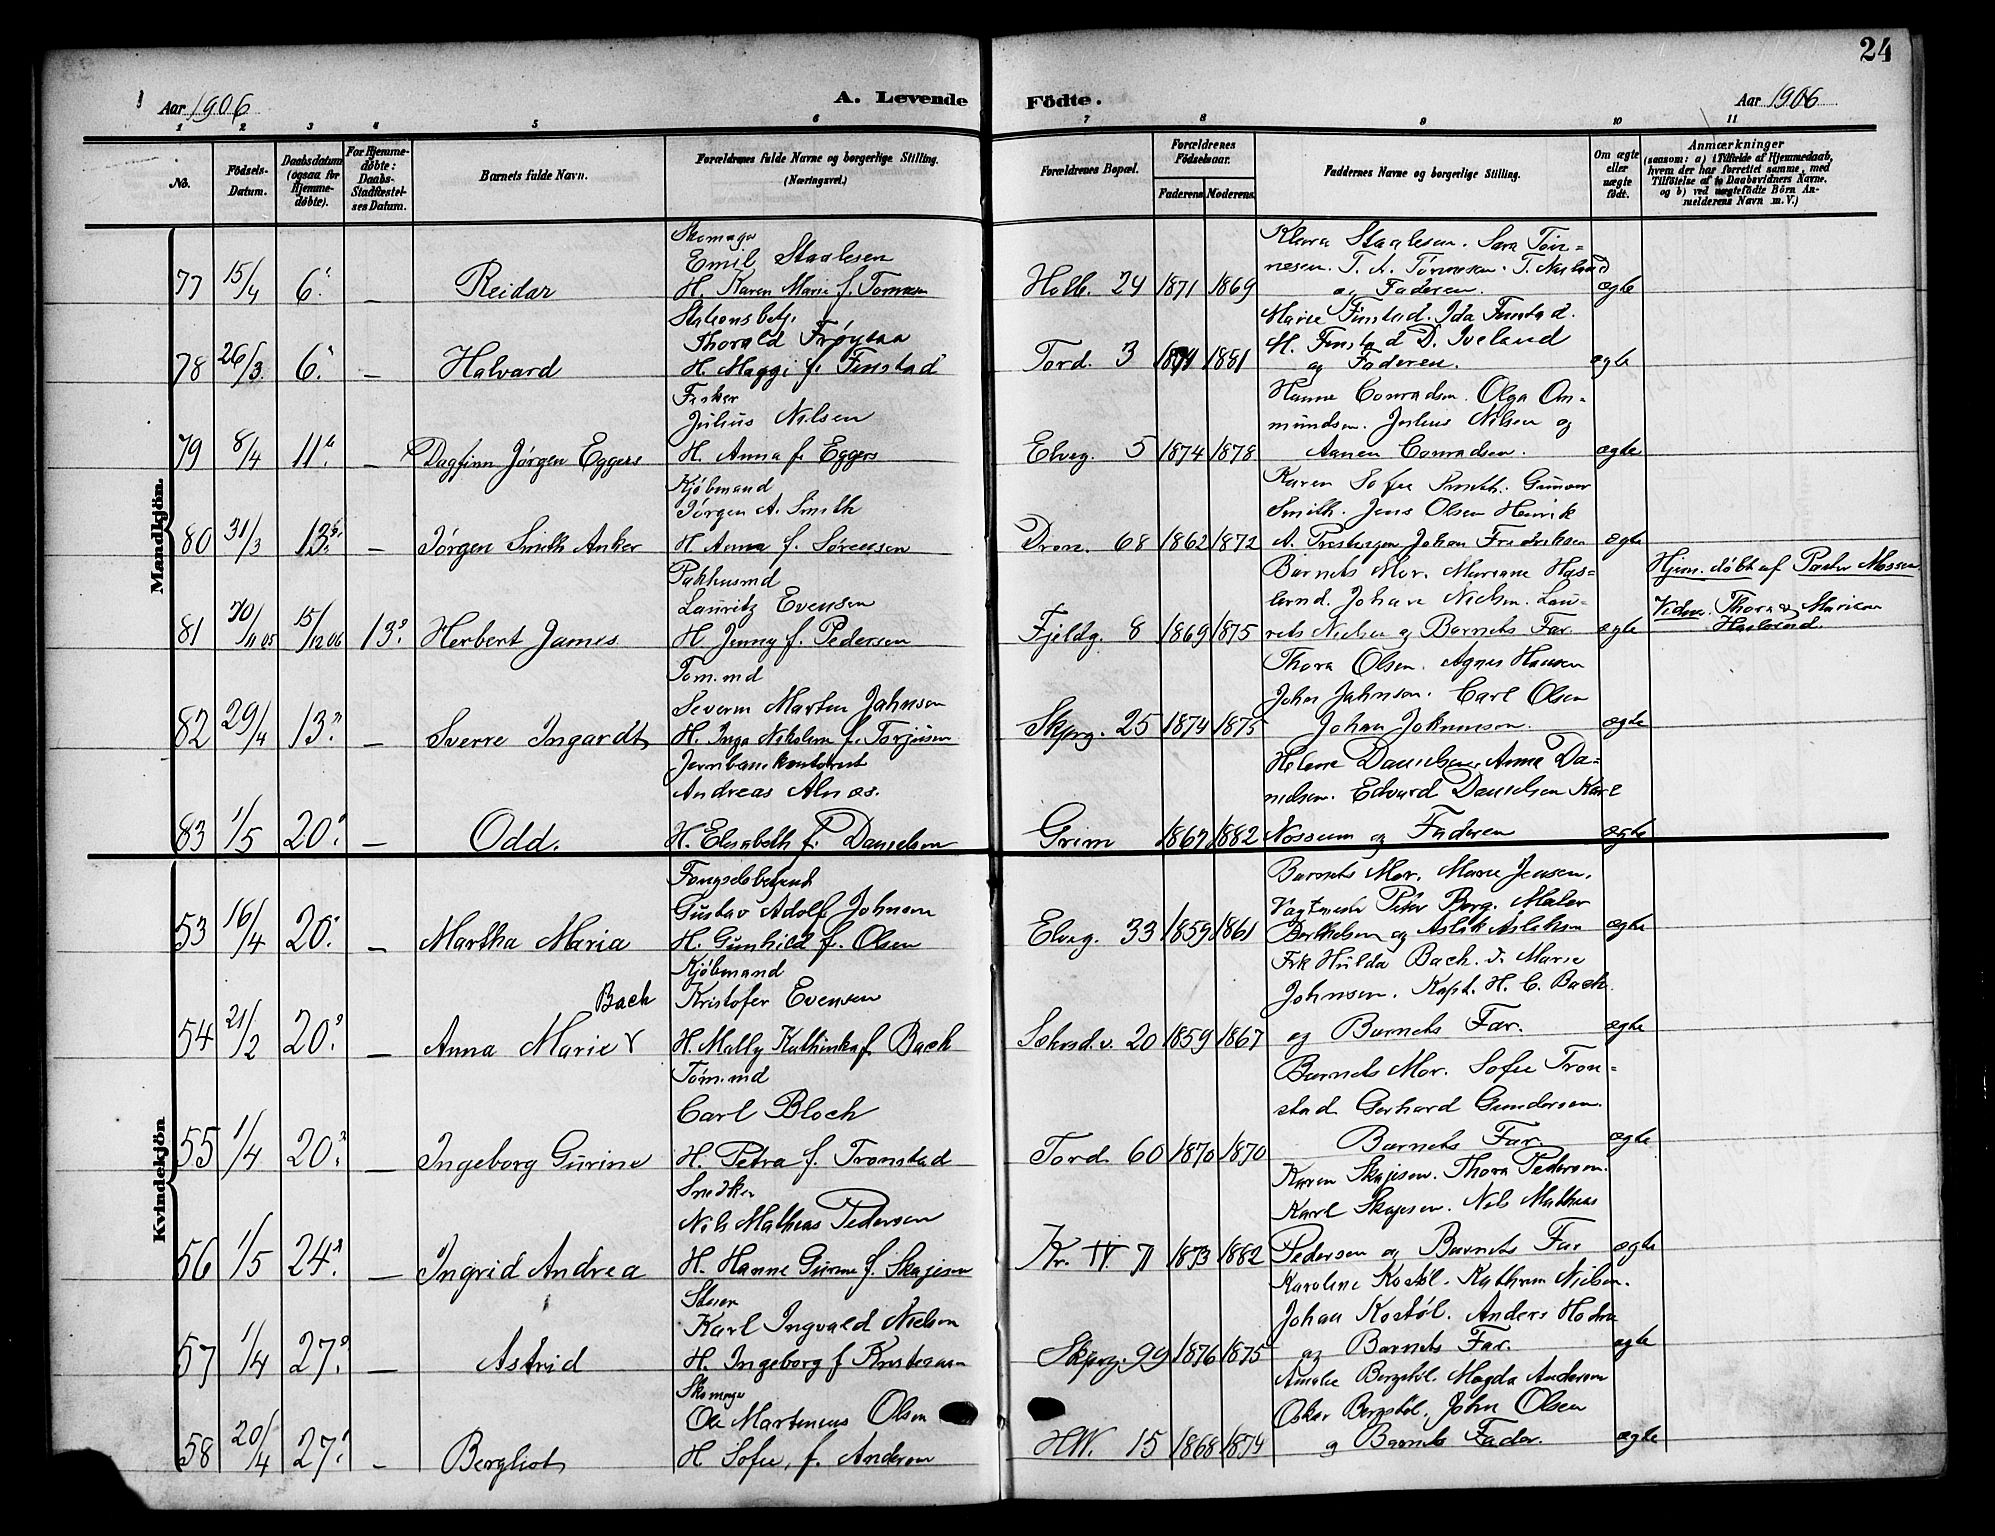 24
Aar 1906
A. Levende Födte.
Aar 1906
1 2 3 4 5 6 7 8 9 10 11
No.
Födsels-Datum.
Daabsdatum (ogsaa for Hjemme-døbte).
For Hjemme-døbte: Daabs-Stadfæstel-ses Datum.
Barnets fulde Navn.
Forældrenes fulde Navne og borgerlige Stilling.
(Næringsvei.)
Forældrenes Bopæl.
Forældrenes Födselsaar.
Faderens. Moderens.
Faddernes Navne og borgerlige Stilling.
Om ægte eller uægte födt.
Anmærkninger
(saasom: a) i Tilfælde af Hjemmedaab,
hvem der har forrettet samme, med
Tilföielse af to Daabsvidners Navne,
og b) ved uægtefödte Börn An-
melderens Navn m. V.)
Mandkjön.
Skomager
Emil Staalesen
77 15/4 6. — Reidar H. Karen Marie f. Tønnesen
Holb. 24 1871 1869
Klara Staalesen. Sara Tøn-
nesen. T. A. Tønnesen. T.
og Faderen. ægte
Stationsbetj.
Thorald Frøysaa
78 26/3 6. — Halvard H. Maggi f. Finstad
Tord. 3 1881
Marie Finstad. Ida Finstad.
M. Finstad D. Iveland
og Faderen. ægte
Fisker
Julius Nilsen
79 8/4 11. — Dagfinn Jørgen Eggers H. Anna f. Eggers
Elveg. 5 1874 1878
Hanne Conradsen. Olga Om-
mundsen. Julius Nilsen og
Aanen Conradsen. ægte
Kjöbmand
Jörgen A. Smith
80 31/3 13. — Jörgen Smith Anker H. Anna f. Sørensen
Dron. 68 1862 1872
Karen Sofie Smith. Gunvor
Smith. Jens Olsen Henrik
A. Johan Fredriksen ægte
Pakhusmd
Lauritz Evensen
81 30/11 05 15/12 06 13. Herbert James. H. Jenny f. Pedersen
Fjeldg. 8 1869 1875
Barnets Mor. Mariane Has-
lund. Johan Nielsen. Lau-
rits Nielsen og Barnets Far. ægte
Hjem. döbt af Pastor Mossen
Vidner. Thora og Mariane
Haslund.
Tøm.md
Severin Martin Jahnsen
82 29/4 13. — Sverre Ingardt H. Inga Nikoline f. Torjusen
Skjerg. 25 1874 1875
Thora Olsen. Agnes Hansen
John Jahnson. Carl Olsen
Johan Johnnson. ægte
Jernbanekontorist
Andreas Alnæs.
83 1/5 20. — Odd. H. Elisabeth f. Danielsen
Grim 1867 1882
Helene Danielsen Anna Da-
nielsen. Edvard Danielsen Karl
Nossum og Faderen ægte
Kvindekjön
Fængselsbetjent
Gustav Adolf Johnsen
53 16/4 20. — Martha Maria H. Gunhild f. Olsen
Elveg. 33 1859 1861
Barnets Mor. Marie Jensen.
Vagtmester Peter Berg. Maler
Berthelsen og Aslak Aslaksen ægte
Kjöbmand
Bach Kristofer Evensen
54 21/2 20. — Anna Marie H. Mally Kathinka f. Bach
20 1859 1867
Frk Hulda Bach. Marie
Johnsen. Kapt. H. C. Bach
og Barnets Far. ægte
Tøm.md
Carl Bloch
55 1/4 20. — Ingeborg Gurine H. Petra f. Tronstad
Tord. 60 1870 1870
Barnets Mor. Sofie Tron-
stad Gerhard Gundersen.
Barnets Far. ægte
Snedker
Nils Mathias Pedersen
56 1/5 24. — Ingrid Andrea H. Hanne Gurine f. Skajesen
Kr. IV. 71 1873 1882
Karen Skajesen. Thora Pedersen.
Karl Skajesen. Nils Mathias
Pedersen og Barnets Far ægte
Karl Ingvald Nielsen
57 1/4 27. — Astrid H. Ingeborg f Kristensen
Skjerg. 99 1876 1875
Karoline Kostøl. Kathrin Nielsen.
Johan Kostøl. Anders
og Barnets Far. ægte
Skomager
Ole Martenius Olsen
58 20/4 27. — Bergliot H Sofie, f. Andersen
HW. 15 1868 1874
Amalie Bergstöl. Magda Andersen
Oskar Bergstöl, John Olsen
og Barnets Fader. ægte